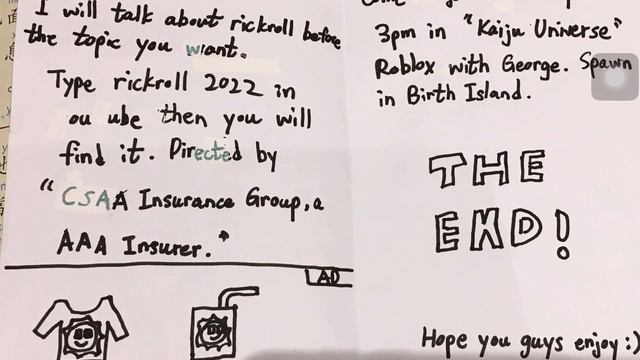 I will talk about rickroll before
the topic you want.
Type rickroll 2022 in
ou ube then you will
find it. Directed by
"CSAA Insurance Group, a
AAA Insurer."
AD
3pm in "Kaiju Universe"
Roblox with George. Spawn
in Birth Island.
THE
END!
Hope you guys enjoy :)